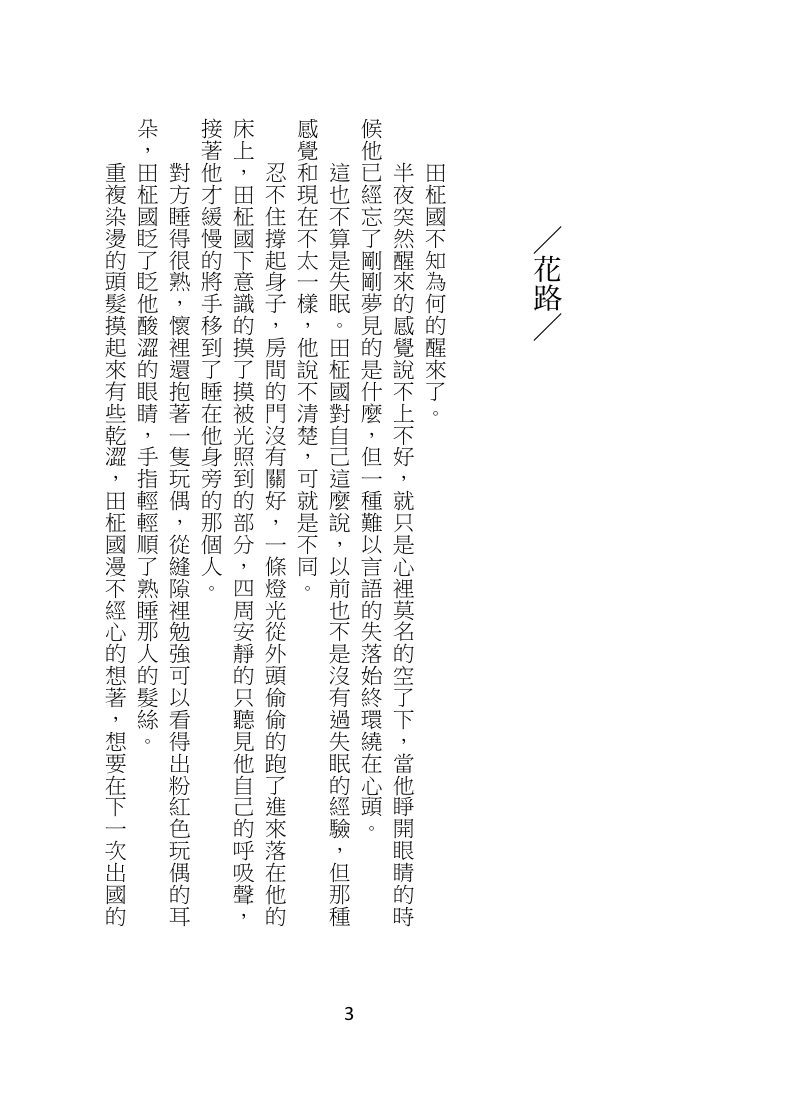 ／花路／
田柾國不知為何的醒來了。
半夜突然醒來的感覺說不上不好，就只是心裡莫名的空了下，當他睜開眼睛的時
候他已經忘了剛剛夢見的是什麼，但一種難以言語的失落始終環繞在心頭。
這也不算是失眠。田柾國對自己這麼說，以前也不是沒有過失眠的經驗，但那種
感覺和現在不太一樣，他說不清楚，可就是不同。
忍不住撐起身子，房間的門沒有關好，一條燈光從外頭偷偷的跑了進來落在他的
床上，田柾國下意識的摸了摸被光照到的部分，四周安靜的只聽見他自己的呼吸聲，
接著他才緩慢的將手移到了睡在他身旁的那個人。
對方睡得很熟，懷裡還抱著一隻玩偶，從縫隙裡勉強可以看得出粉紅色玩偶的耳
朵，田柾國眨了眨他酸澀的眼睛，手指輕輕順了熟睡那人的髮絲。
重複染燙的頭髮摸起來有些乾澀，田柾國漫不經心的想著，想要在下一次出國的
3